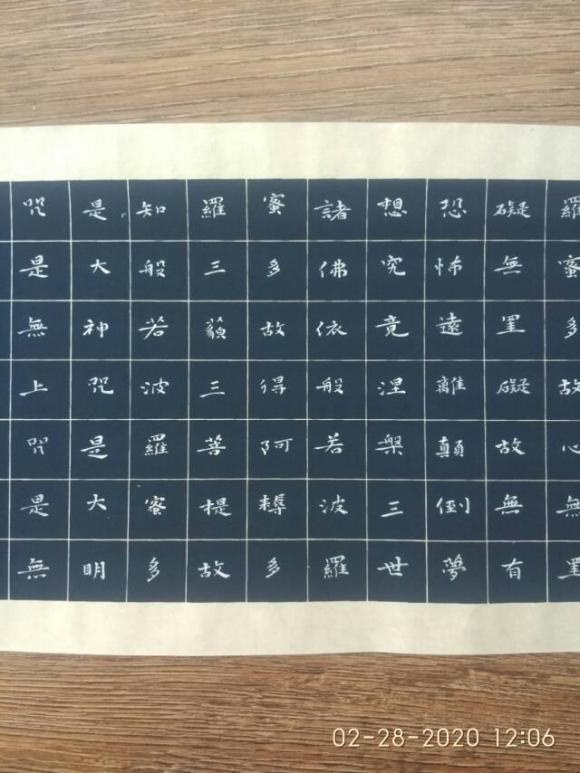 羅蜜多故心無罣
礙無罣礙故無有
恐怖遠離顛倒夢
想究竟涅槃三世
諸佛依般若波羅
蜜多故得阿耨多
羅三藐三菩提故
知般若波羅蜜多
是大神咒是大明
咒是無上咒是無
02-28-2020 12:06